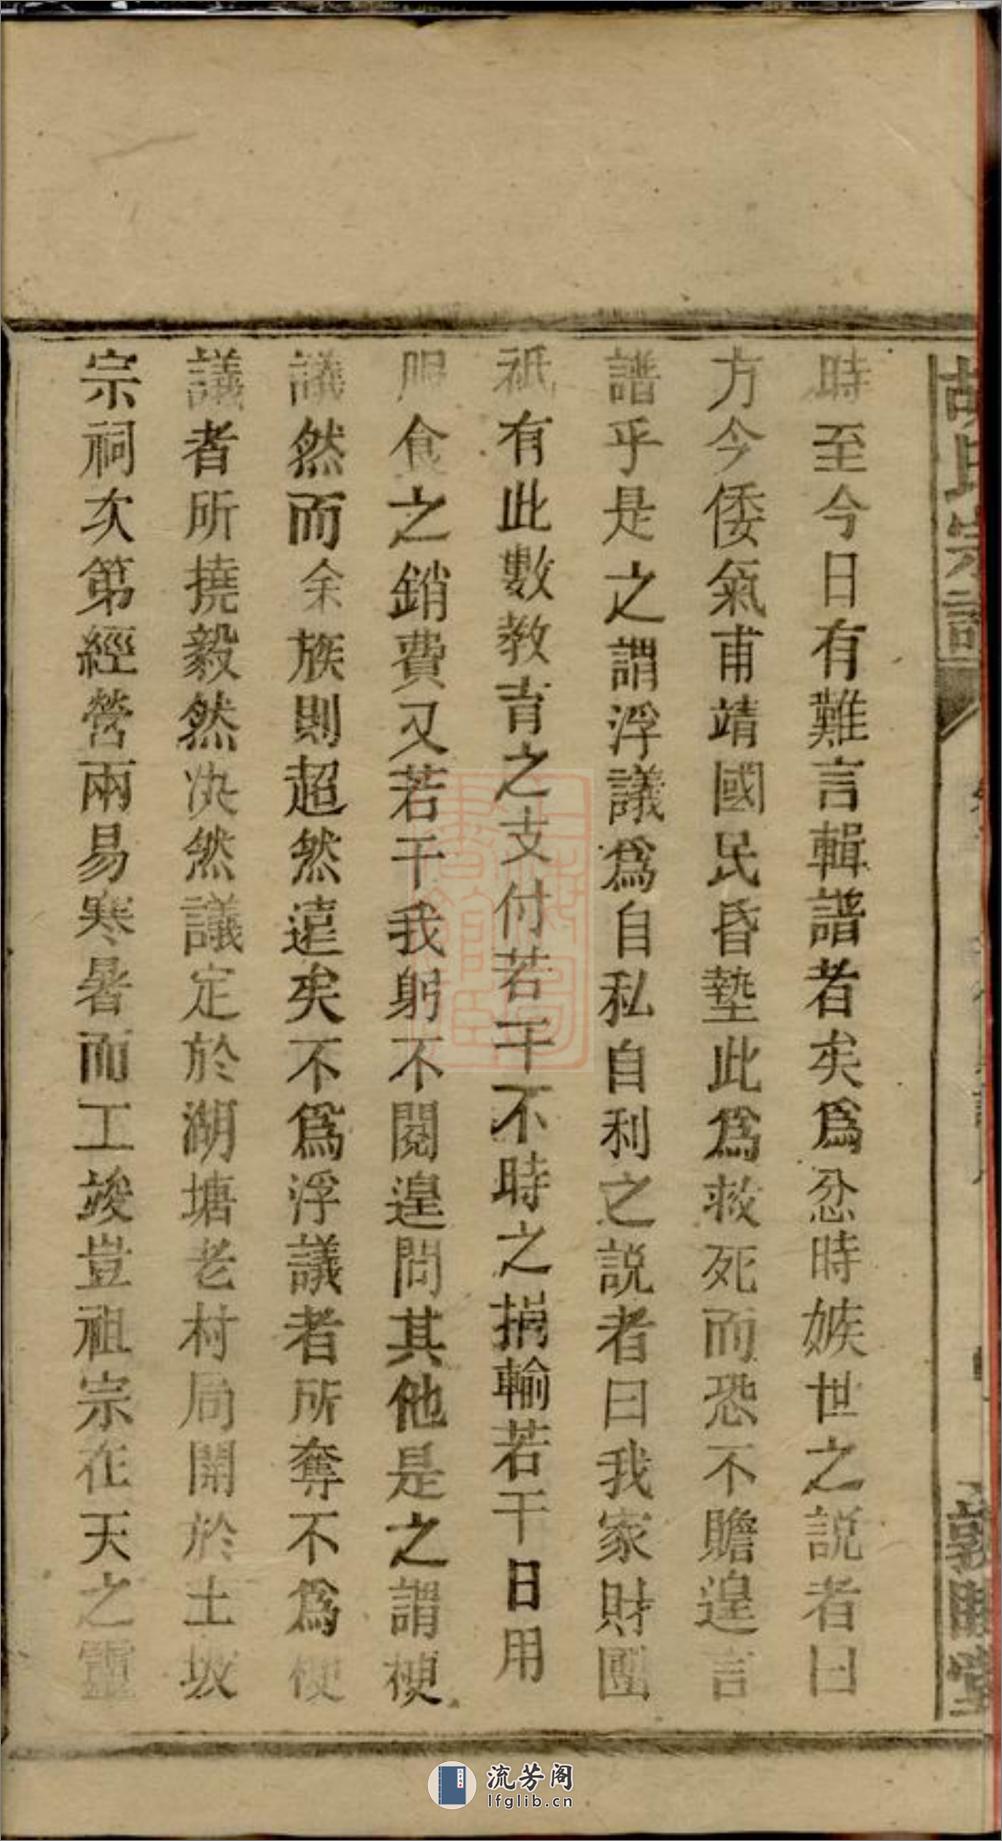 時至今日有難言輯譜者矣爲忿時嫉世之説者曰
方今倭氣甫靖國民昏墊此爲救死而恐不贍遑言
譜乎是之謂浮議爲自私自利之説者曰我家財團
祇有此數教育之支付若干不時之捐輸若干日用
服食之銷費又若干我躬不閱遑問其他是之謂梗
議然而余族則超然遠矣不爲浮議者所奪不爲梗
議者所撓毅然决然議定於湖塘老村局開於土坡
宗祠次第經營兩易寒暑而工竣豈祖宗在天之靈
胡氏宗譜
敦睦堂
流芳阁
lfglib.cn